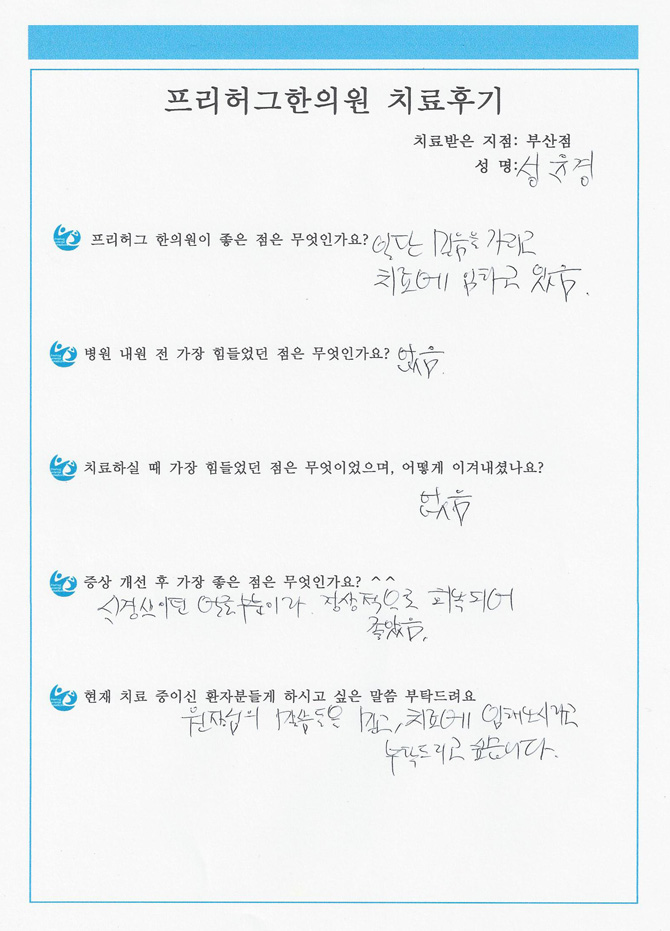 프리허그한의원 치료후기
치료받은 지점: 부산점
성 명:성윤경
프리허그 한의원이 좋은 점은 무엇인가요? 일단 믿음을 가지고
치료에 임하고 있음.
병원 내원 전 가장 힘들었던 점은 무엇인가요? 없음.
치료하실 때 가장 힘들었던 점은 무엇이었으며, 어떻게 이겨내셨나요?
없음
증상 개선 후 가장 좋은 점은 무엇인가요? ^^
얼굴부분이라 정상적으로 회복되어
좋았음.
현재 치료 중이신 환자분들게 하시고 싶은 말씀 부탁드려요
원장님의 말씀들은 믿고, 치료에 임해보시라고
부탁드리고 싶습니다.